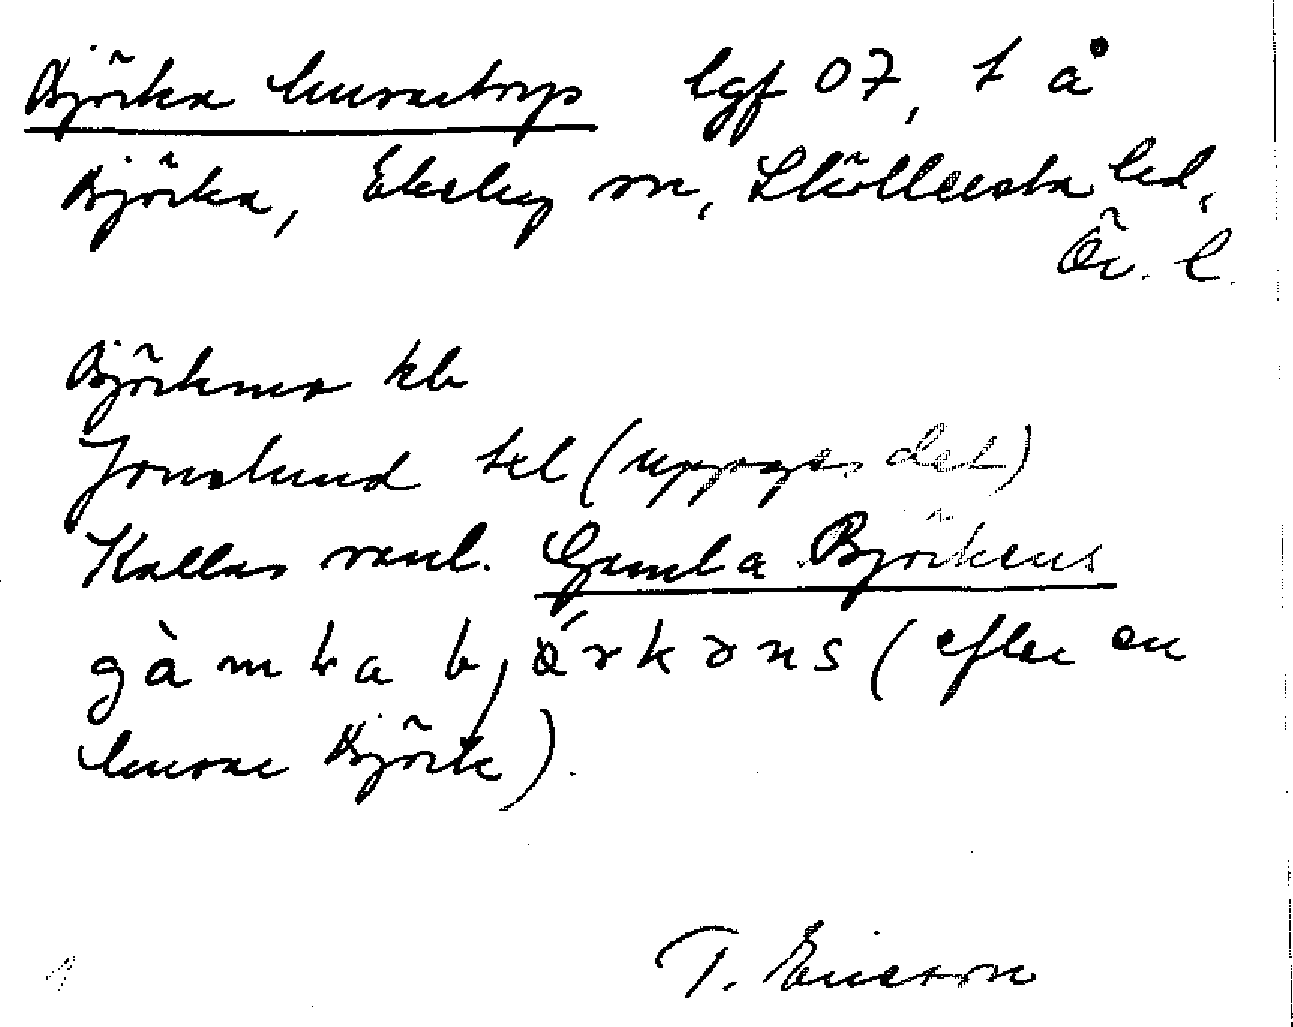 Björka husartorp lgf 07, t å
Björka, Ekeby sn, Sköllersta hd,
Ör. l.
Björkner kb
Jonslund tel (uppges det)
Kallas vanl. Gamla Björkens
gàmɬa bjö́rkəns (efter en
husar Björk).
T. Ericson